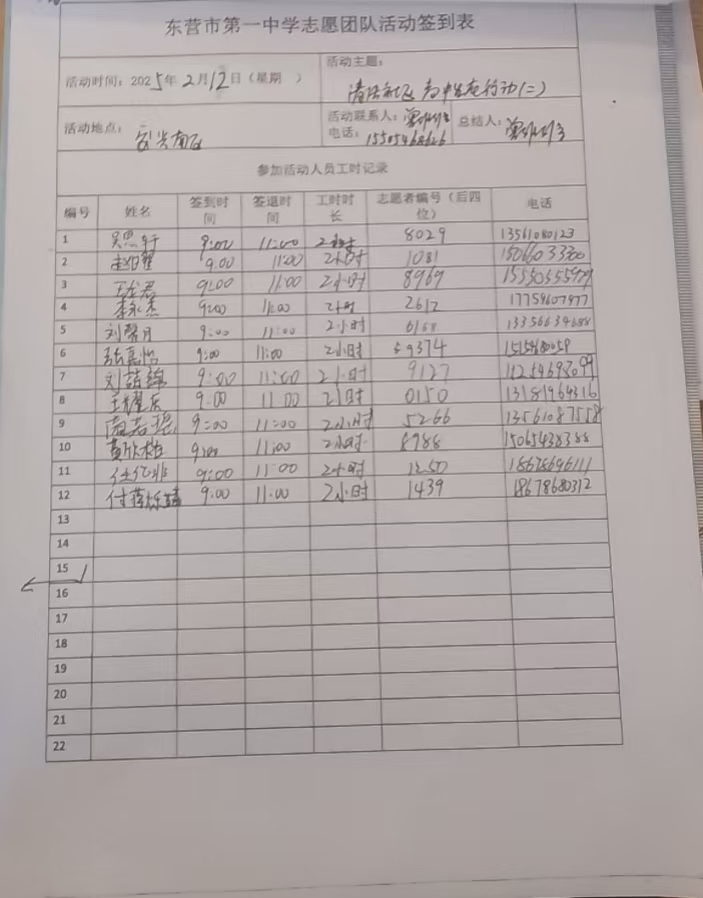 东营市第一中学志愿团队活动签到表
活动时间：2025年2月12日（星期　）
活动主题：
清洁社区 高中生在行动(二)
活动地点：
南区
活动联系人：
电话：15505468626
总结人：
参加活动人员工时记录
编号 姓名 签到时间 签退时间 工时时长 志愿者编号（后四位） 电话
1 吴思轩 9:00 11:00 2小时 8029 13561080123
2 9:00 11:00 2小时 1081 15066033300
3 9:00 11:00 2小时 8969
4 李永杰 9:00 11:00 2小时 2612 17754607977
5 刘馨月 9:00 11:00 2小时 6168 13356634688
6 张嘉怡 9:00 11:00 2小时 9374
7 9:00 11:00 2小时 9127
8 王耀乐 9:00 11:00 2小时 0150 13181964316
9 9:00 11:00 2小时 5266 13561087558
10 黄欣柏 9:00 11:00 2小时 8988 15065438388
11 任亿非 9:00 11:00 2小时 1250 18678696111
12 9:00 11:00 2小时 1439 18678680312
13
14
15
16
17
18
19
20
21
22